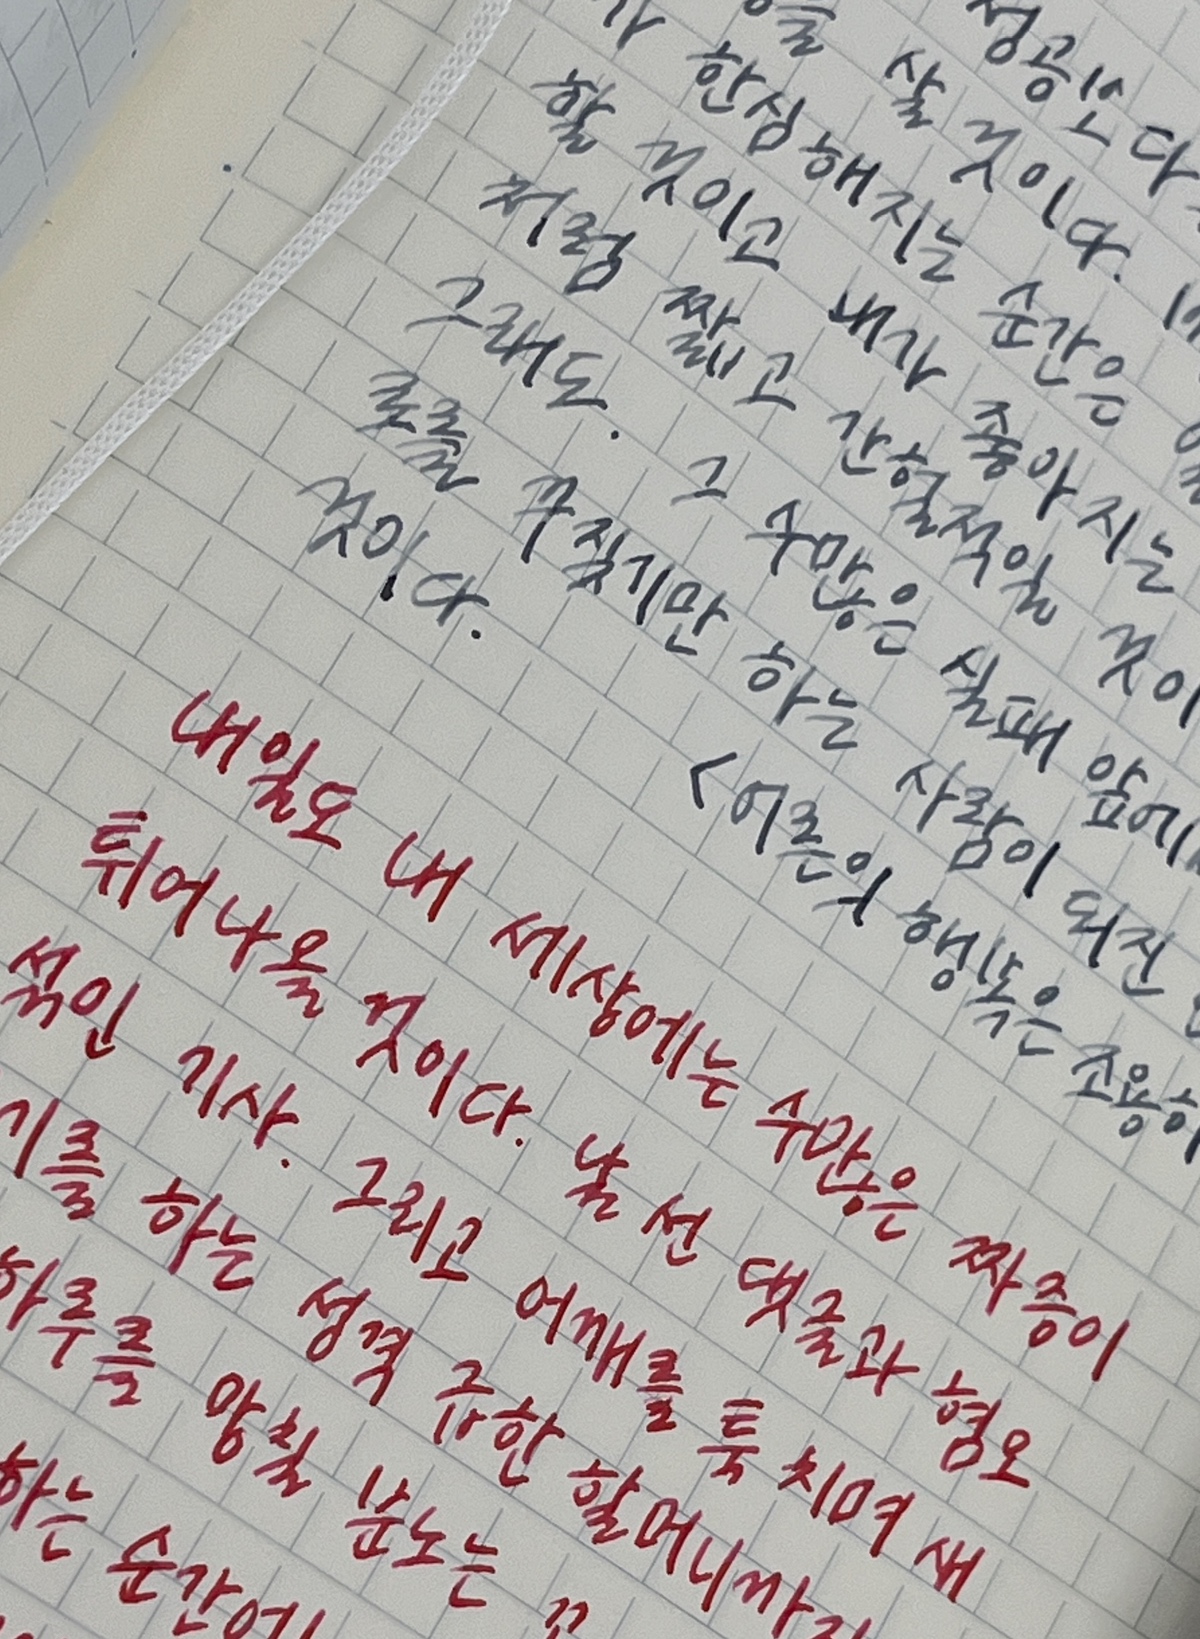 성공보다
을 살 것이다.
가 한심해지는 순간은
할 것이고 내가 좋아지는
처럼 짧고 간헐적일 것이
그래도. 그 수많은 실패 앞에
로를 꾸짖기만 하는 사람이 되진
것이다.
<어른의 행복은 조용하
내일도 내 세상에는 수많은 짜증이
튀어나올 것이다. 날 선 댓글과 혐오
섞인 기사. 그리고 어깨를 툭 치며 새
기를 하는 성격 급한 할머니까지
하루를 망칠 분노는
하는 순간에